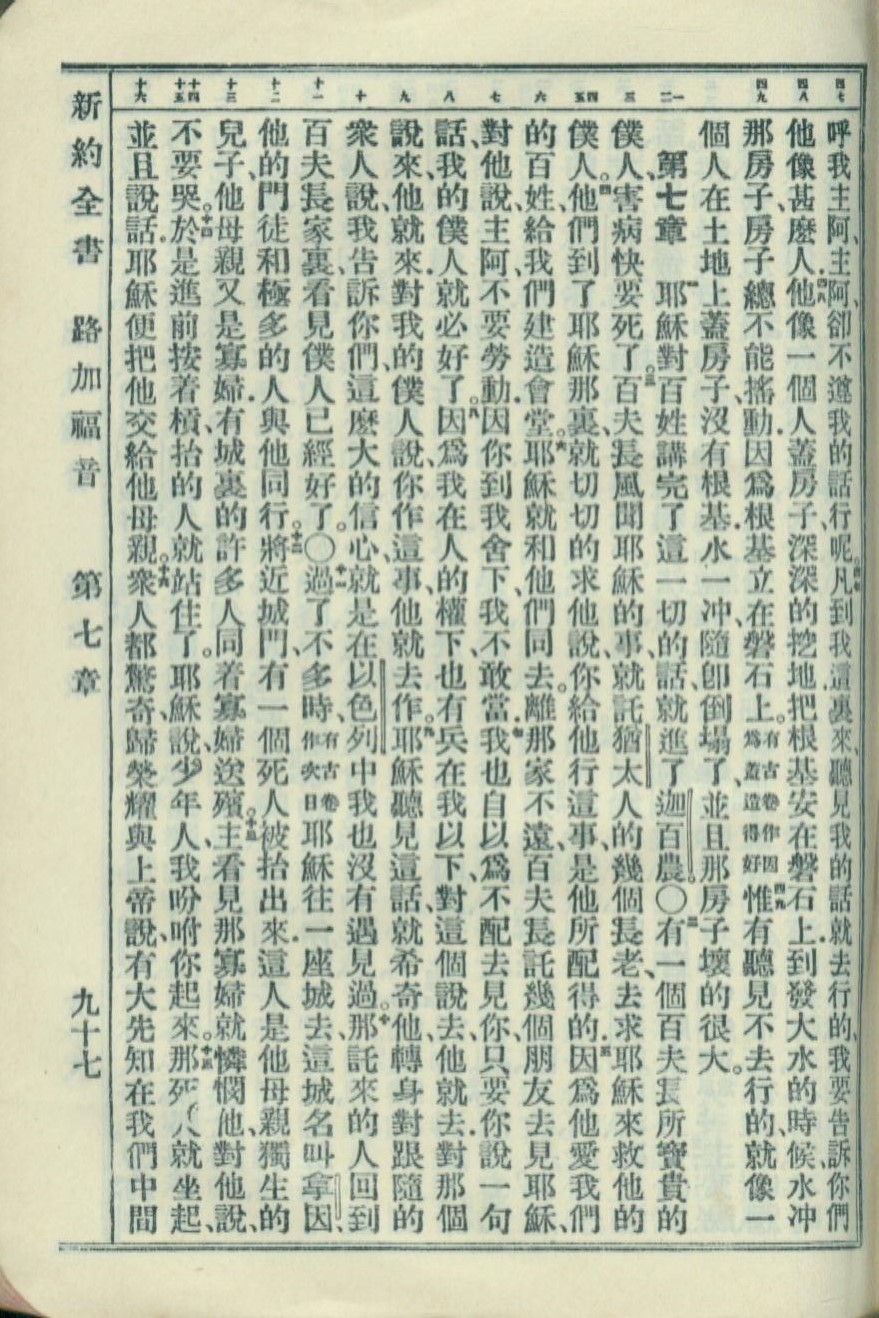 呼我主阿、主阿、卻不遵我的話行呢。四七凡到我這裏來、聽見我的話就去行的、我要告訴你們
他像甚麽人、四八他像一個人蓋房子、深深的挖地、把根基安在磐石上、到發大水的時候、水冲
那房子、房子總不能搖動、因爲根基立在磐石上。有古卷作因爲蓋造得好四九惟有聽見不去行的、就像一
個人在土地上蓋房子、沒有根基、水一冲、隨卽倒塌了、並且那房子壞的很大。
第七章 一耶穌對百姓講完了這一切的話、就進了迦百農。〇二有一個百夫長所寶貴的
僕人、害病快要死了。三百夫長風聞耶穌的事、就託猶太人的幾個長老、去求耶穌來救他的
僕人。四他們到了耶穌那裏、就切切的求他說、你給他行這事、是他所配得的、五因爲他愛我們
的百姓、給我們建造會堂。六耶穌就和他們同去。離那家不遠、百夫長託幾個朋友去見耶穌、
對他說、主阿、不要勞動、因你到我舍下、我不敢當、七我也自以爲不配去見你、只要你說一句
話、我的僕人就必好了。八因爲我在人的權下、也有兵在我以下、對這個說去、他就去、對那個
說來、他就來、對我的僕人說、你作這事、他就去作。九耶穌聽見這話、就希奇他、轉身對跟隨的
衆人說、我告訴你們、這麽大的信心、就是在以色列中我也沒有遇見過。十那託來的人回到
百夫長家裏、看見僕人已經好了。〇十一過了不多時、有古卷作次日耶穌往一座城去、這城名叫拿因、
他的門徒和極多的人與他同行。十二將近城門、有一個死人被抬出來、這人是他母親獨生的
兒子、他母親又是寡婦、有城裏的許多人同着寡婦送殯。十三主看見那寡婦就憐憫他、對他說、
不要哭。十四於是進前按着槓、抬的人就站住了。耶穌說、少年人、我吩咐你起來。十五那死人就坐起、
並且說話。耶穌便把他交給他母親。十六衆人都驚奇、歸榮耀與上帝說、有大先知在我們中間
四七
四八
四九
一二
三
四五
六
七
八
九
十
十一
十二
十三
十四十五
十六
新約全書 路加福音 第七章 九十七